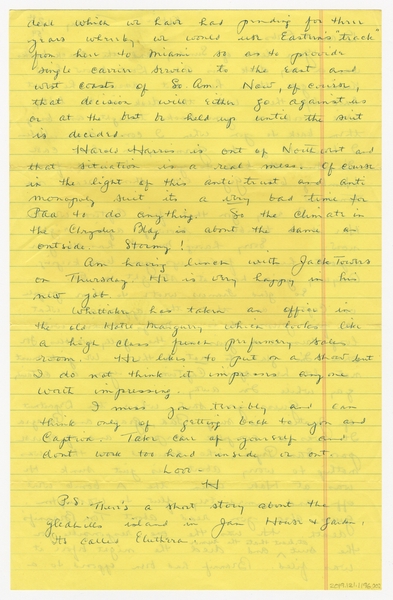 deal which we have had pending for three
years whereby we would use Eastern's "track"
from here to Miami so as to provide
single carrier service to the East and
West coasts of So. Am. Now, of course,
that decision will either go against us
or at the best be held up until the suit
is decided.
Harold Harris is out of Northwest and
that situation is a real mess. Of course
in the light of this anti trust and anti
monopoly suit its a very bad time for
Paa to do anything. So the climate in
the Chrysler Bldg is about the same as
outside. Stormy!
Am having lunch with Jack Towers
on Thursday. He is very happy in his
new job.
Whittaker has taken an office in
the old Hotel Marguery which looks like
a high class french perfumery sales
room. He likes to put on a show but
I do not think it impresses anyone
worth impressing.
I miss you terribly and can
think only of getting back to you and
Captiva. Take care of yourself and
dont work too hard inside or out.
Love -
H
P.S. There's a short story about the
gledhills island in Jan House & Garden.
Its called Eleuthera.